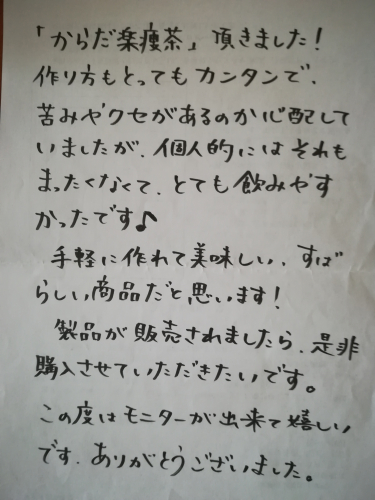 「からだ楽痩茶」頂きました！
作り方もとってもカンタンで、
苦みやクセがあるのか心配して
いましたが、個人的にはそれも
まったくなくて、とても飲みやす
かったです♪
手軽に作れて美味しい、すば
らしい商品だと思います！
製品が販売されましたら、是非
購入させていただきたいです。
この度はモニターが出来て嬉しい
です。ありがとうございました。